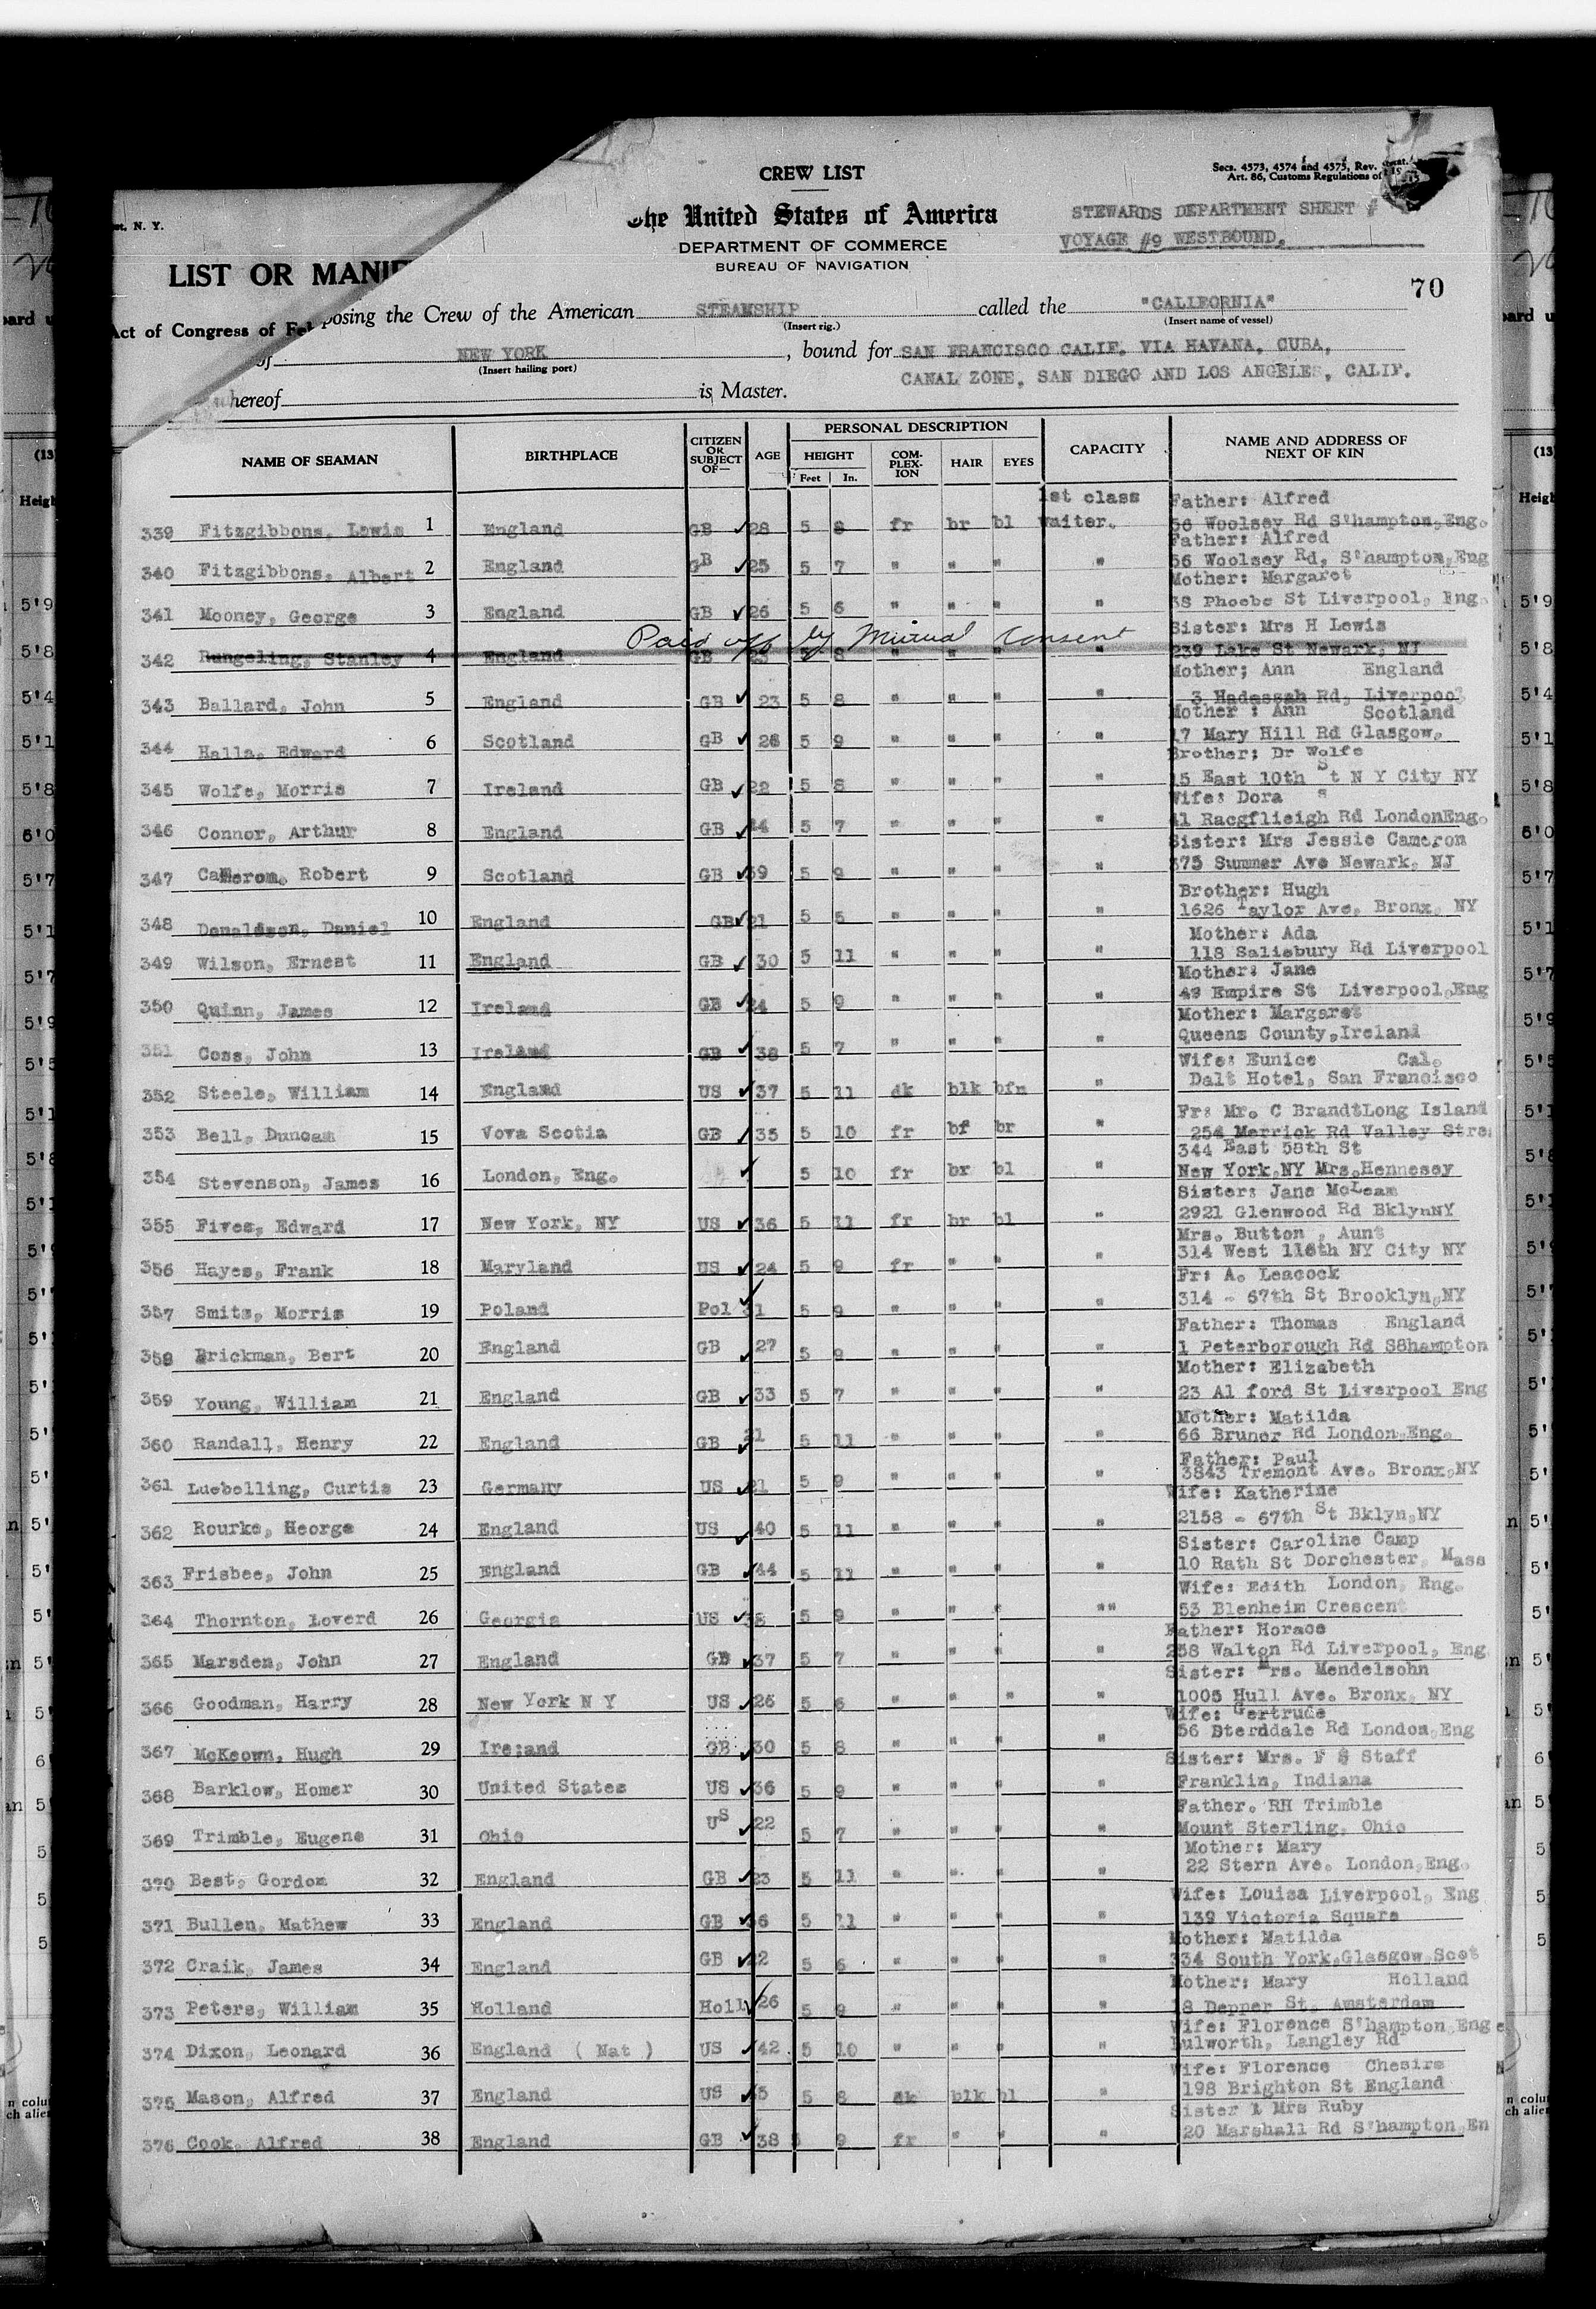 CREW LIST
Secs. 4573, 4574 and 4575, Rev. Stat.
Art. 86, Customs Regulations of
The United States of America
DEPARTMENT OF COMMERCE
BUREAU OF NAVIGATION
STEWARDS DEPARTMENT SHEET #
VOYAGE #9 WESTBOUND.
N. Y.
LIST OR MANIF
70
Act of Congress of Fe
posing the Crew of the American STEAMSHIP called the "CALIFORNIA"
(Insert rig.) (Insert name of vessel)
of NEW YORK , bound for SAN FRANCISCO CALIF. VIA HAVANA, CUBA,
(Insert hailing port)
CANAL ZONE, SAN DIEGO AND LOS ANGELES, CALIF.
whereof is Master.
NAME OF SEAMAN BIRTHPLACE CITIZEN OR SUBJECT OF— AGE PERSONAL DESCRIPTION CAPACITY NAME AND ADDRESS OF NEXT OF KIN
HEIGHT COM- PLEX- ION HAIR EYES
Feet In.
1st class Father: Alfred
339 Fitzgibbons, Lewis 1 England GB 28 5 8 fr br bl waiter. 56 Woolsey Rd S'hampton,Eng.
Father: Alfred
340 Fitzgibbons, Albert 2 England GB 25 5 7 " " " " 56 Woolsey Rd, S'hampton,Eng
Mother: Margaret
341 Mooney, George 3 England GB 26 5 6 " " " " 38 Phoebe St Liverpool, Eng.
Paid off by Mutual Consent
Sister: Mrs H Lewis
342 Rungeling, Stanley 4 England GB 23 5 8 " " " " 239 Lake St Newark, NJ
Mother; Ann England
343 Ballard, John 5 England GB 23 5 8 " " " " 3 Hadassah Rd, Liverpool
Mother : Ann Scotland
344 Halla, Edward 6 Scotland GB 26 5 9 " " " " 17 Mary Hill Rd Glasgow.
Brother; Dr Wolfe
345 Wolfe, Morris 7 Ireland GB 22 5 8 " " " " 15 East 10th St N Y City NY
Wife: Dora
346 Connor, Arthur 8 England GB 44 5 7 " " " " 41 Racgflieigh Rd LondonEng.
Sister: Mrs Jessie Cameron
347 Cameron, Robert 9 Scotland GB 39 5 9 " " " " 375 Summer Ave Newark, NJ
Brother: Hugh
348 Donaldson, Daniel 10 England GB 21 5 5 " " " " 1626 Taylor Ave. Bronx, NY
Mother: Ada
349 Wilson, Ernest 11 England GB 30 5 11 " " " " 118 Salisbury Rd Liverpool
Mother: Jane
350 Quinn, James 12 Ireland GB 24 5 9 " " " " 49 Empire St Liverpool,Eng
Mother: Margaret
351 Coss, John 13 Ireland GB 38 5 7 " " " " Queens County,Ireland
Wife: Eunice Cal.
352 Steele, William 14 England US 37 5 11 dk blk bfn " Dalt Hotel, San Francisco
Fr: Mr. C BrandtLong Island
353 Bell, Duncam 15 Vova Scotia GB 35 5 10 fr bf br " 254 Merrick Rd Valley Stre
344 East 58th St
354 Stevenson, James 16 London, Eng. 5 10 fr br bl " New York,NY Mrs.Hennesey
Sister: Jane McLeam
355 Fives, Edward 17 New York, NY US 36 5 11 fr br bl " 2921 Glenwood Rd BklynNY
Mrs. Button , Aunt
356 Hayes, Frank 18 Maryland US 24 5 9 fr " " " 314 West 116th NY City NY
Fr: A. Leacock
357 Smits, Morris 19 Poland Pol 31 5 9 " " " " 314 - 67th St Brooklyn,NY
Father: Thomas England
358 Brickman, Bert 20 England GB 27 5 9 " " " " 1 Peterborough Rd S8hampton
Mother: Elizabeth
359 Young, William 21 England GB 33 5 7 " " " " 23 Al ford St Liverpool Eng
Mother: Matilda
360 Randall, Henry 22 England GB 21 5 11 " " " " 66 Bruner Rd London,Eng.
Father: Paul
361 Luebelling, Curtis 23 Germany US 21 5 9 " " " " 3843 Tremont Ave. Bronx,NY
Wife: Katherine
362 Rourke, Heorge 24 England US 40 5 11 " " " " 2158 - 67th St Bklyn,NY
Sister: Caroline Camp
363 Frisbee, John 25 England GB 44 5 11 " " " " 10 Rath St Dorchester, Mass
Wife: Edith London, Eng.
364 Thornton, Loverd 26 Georgia US 38 5 9 " " " "" 53 Blenheim Crescent
Father: Horace
365 Marsden, John 27 England GB 37 5 7 " " " " 258 Walton Rd Liverpool, Eng
Sister: Mrs. Mendelsohn
366 Goodman, Harry 28 New York N Y US 26 5 6 " " " " 1005 Hull Ave. Bronx, NY
Wife: Gertrude
367 McKeown, Hugh 29 Ire:and GB 30 5 8 " " " " 56 Dterddale Rd London,Eng
Sister: Mrs. F S Staff
368 Barklow, Homer 30 United States US 36 5 9 " " " " Franklin, Indiana
Father. RH Trimble
369 Trimble, Eugene 31 Ohio US 22 5 7 " " " " Mount Sterling, Ohio
Mother: Mary
370 Best, Gordon 32 England GB 23 5 11 " " " " 22 Stern Ave. London,Eng.
Wife: Louisa Liverpool, Eng
371 Bullen, Mathew 33 England GB 36 5 11 " " " " 139 Victoria Square
Mother: Matilda
372 Craik, James 34 England GB 22 5 6 " " " " 334 South York,Glasgow,Scot
Mother: Mary Holland
373 Peters, William 35 Holland Holl 26 5 9 " " " " 18 Depper St. Amsterdam
Wife: Florence S'hampton,Eng
374 Dixon, Leonard 36 England ( Nat ) US 42 5 10 " " " " Lulworth, Langley Rd
Wife: Florence Chesire
375 Mason, Alfred 37 England US 45 5 8 dk blk bl " 198 Brighton St England
Sister Mrs Ruby
376 Cook, Alfred 38 England GB 38 5 9 fr " " " 20 Marshall Rd S'hampton,En